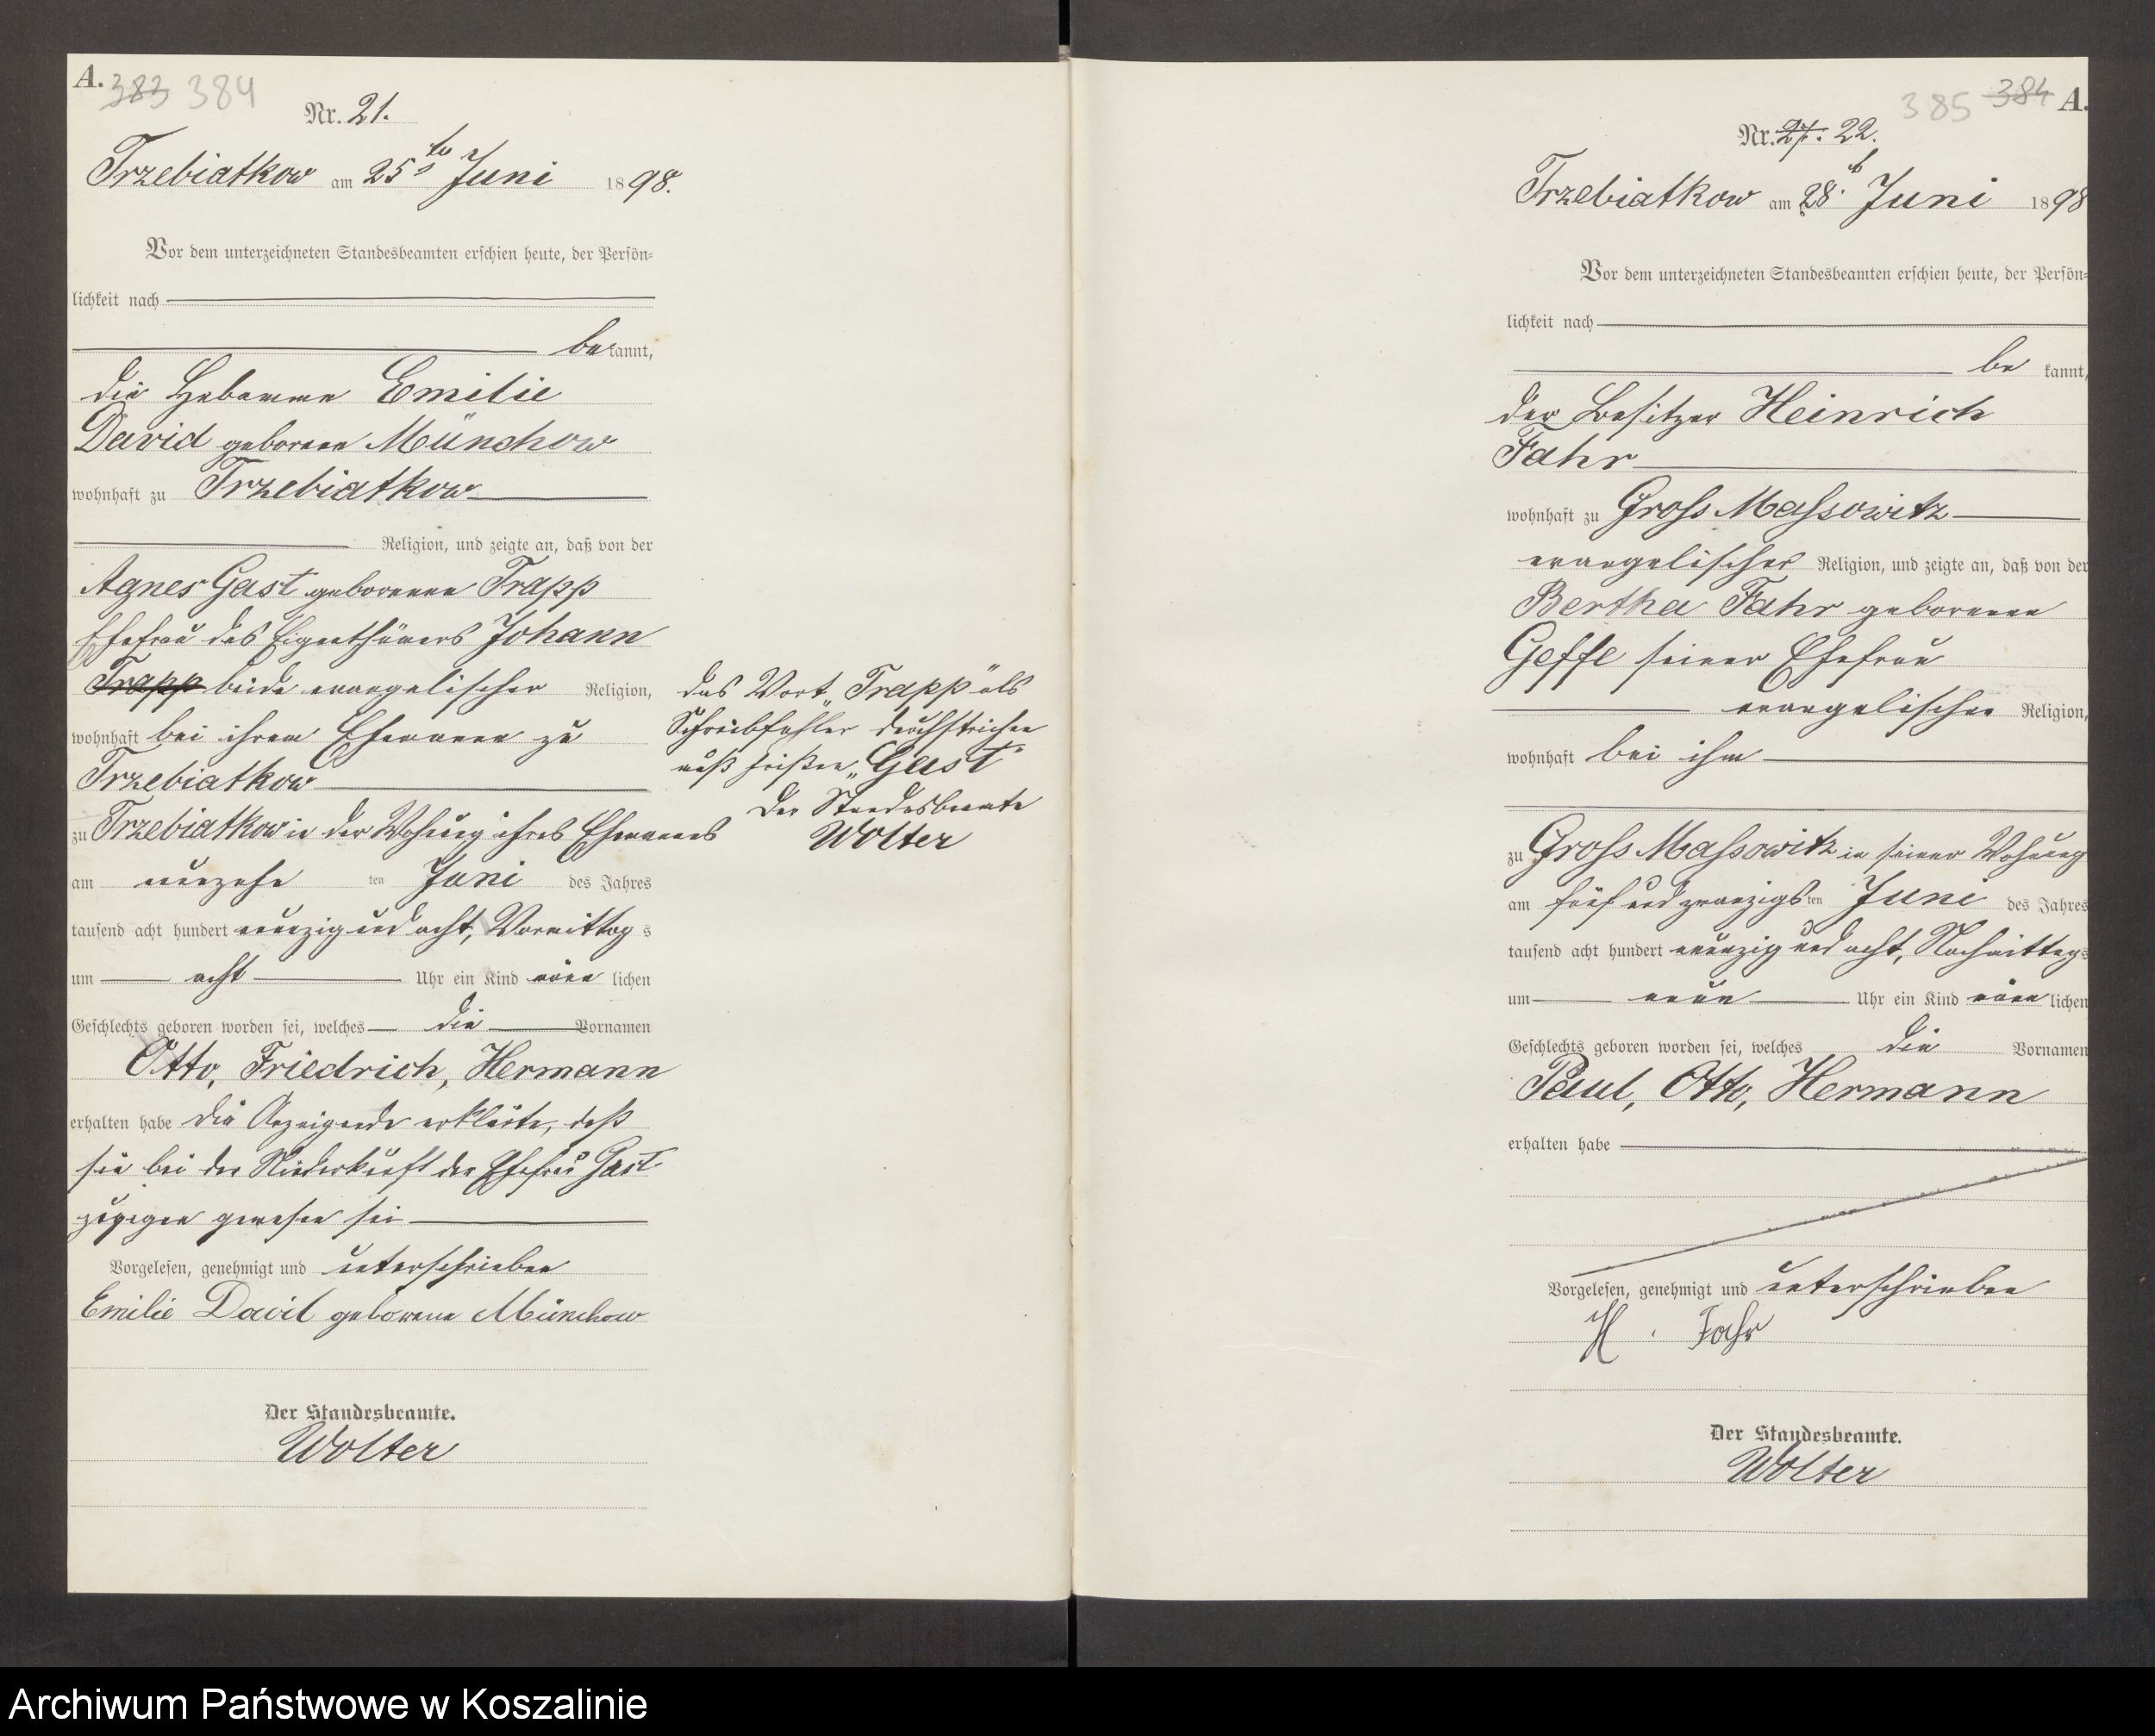 A. 383 384
Nr. 21.
Trzebiatkow am 25ten Juni 1898.
Vor dem unterzeichneten Standesbeamten erschien heute, der Persön-
lichkeit nach
bekannt,
die Hebamme Emilie
David geborene Münchow
wohnhaft zu Trzebiatkow
Religion, und zeigte an, daß von der
Agnes Gast geborenen Trapp
Ehefrau des Eigenthümers Johann
Trapp beide evangelischer Religion,
wohnhaft bei ihrem Ehemann zu
Trzebiatkow
zu Trzebiatkow in der Wohnung ihres Ehemanns
am neunzehnten Juni des Jahres
tausend acht hundert neunzig und acht, Vormittags
um acht Uhr ein Kind männlichen
Geschlechts geboren worden sei, welches die Vornamen
Otto, Friedrich, Hermann
erhalten habe die Anzeigende erklärte, daß
sie bei der Niederkunft der Ehefrau Gast
zugegen gewesen sei
Vorgelesen, genehmigt und unterschrieben
Emilie David geborene Münchow
Der Standesbeamte.
Wolter
das Wort „Trapp" als
Schreibfehler durchstrichen
muß heißen „Gast"
Der Standesbeamte
Wolter
385 384 A.
Nr. 27. 22.
Trzebiatkow am 28.t Juni 1898
Vor dem unterzeichneten Standesbeamten erschien heute, der Persön-
lichkeit nach
be kannt,
der Besitzer Heinrich
Fahr
wohnhaft zu Gross Massowitz
evangelischer Religion, und zeigte an, daß von der
Bertha Fahr geborenen
Geffe seiner Ehefrau
evangelischer Religion,
wohnhaft bei ihm
zu Gross Massowitz in seiner Wohnung
am fünf und zwanzigsten Juni des Jahres
tausend acht hundert neunzig und acht, Nachmittags
um neun Uhr ein Kind männlichen
Geschlechts geboren worden sei, welches die Vornamen
Paul, Otto, Hermann
erhalten habe
Vorgelesen, genehmigt und unterschrieben
H. Fahr
Der Standesbeamte.
Wolter
Archiwum Państwowe w Koszalinie